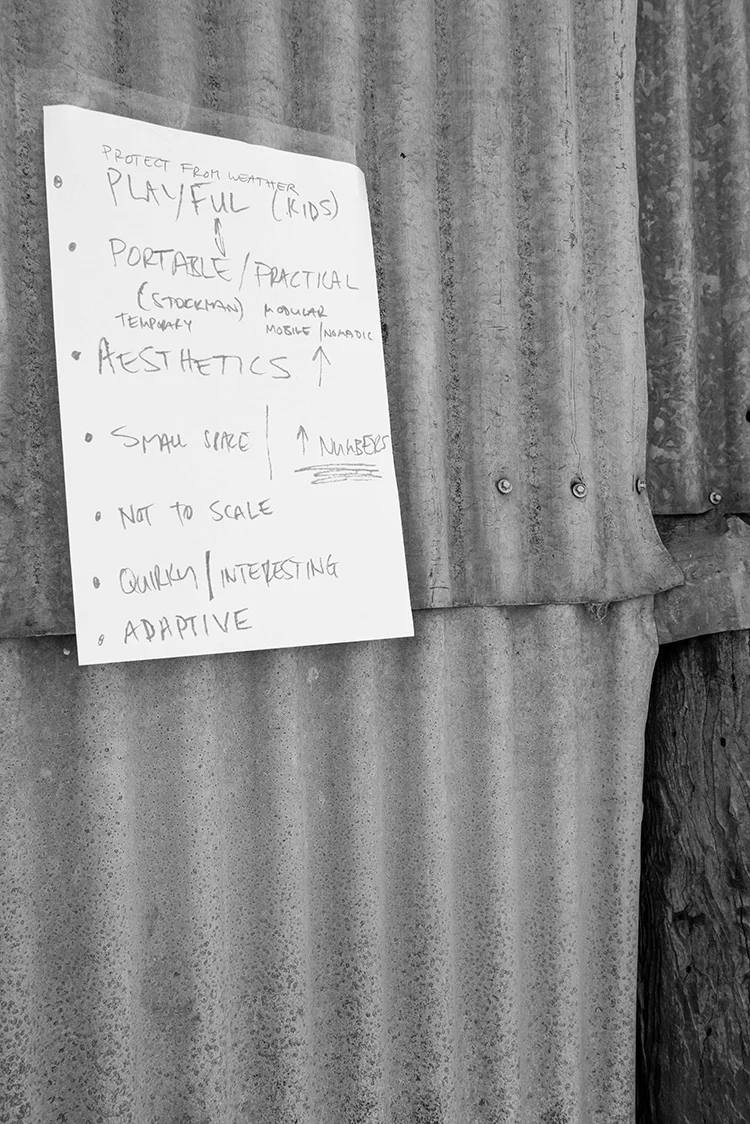 PROTECT FROM WEATHER
• PLAYFUL (KIDS)
• PORTABLE / PRACTICAL
(STOCKMAN) MODULAR
TEMPORARY MOBILE / NOMADIC
• AESTHETICS ↑
• SMALL SPACE | ↑ NUMBERS
• NOT TO SCALE
• QUIRKY / INTERESTING
• ADAPTIVE